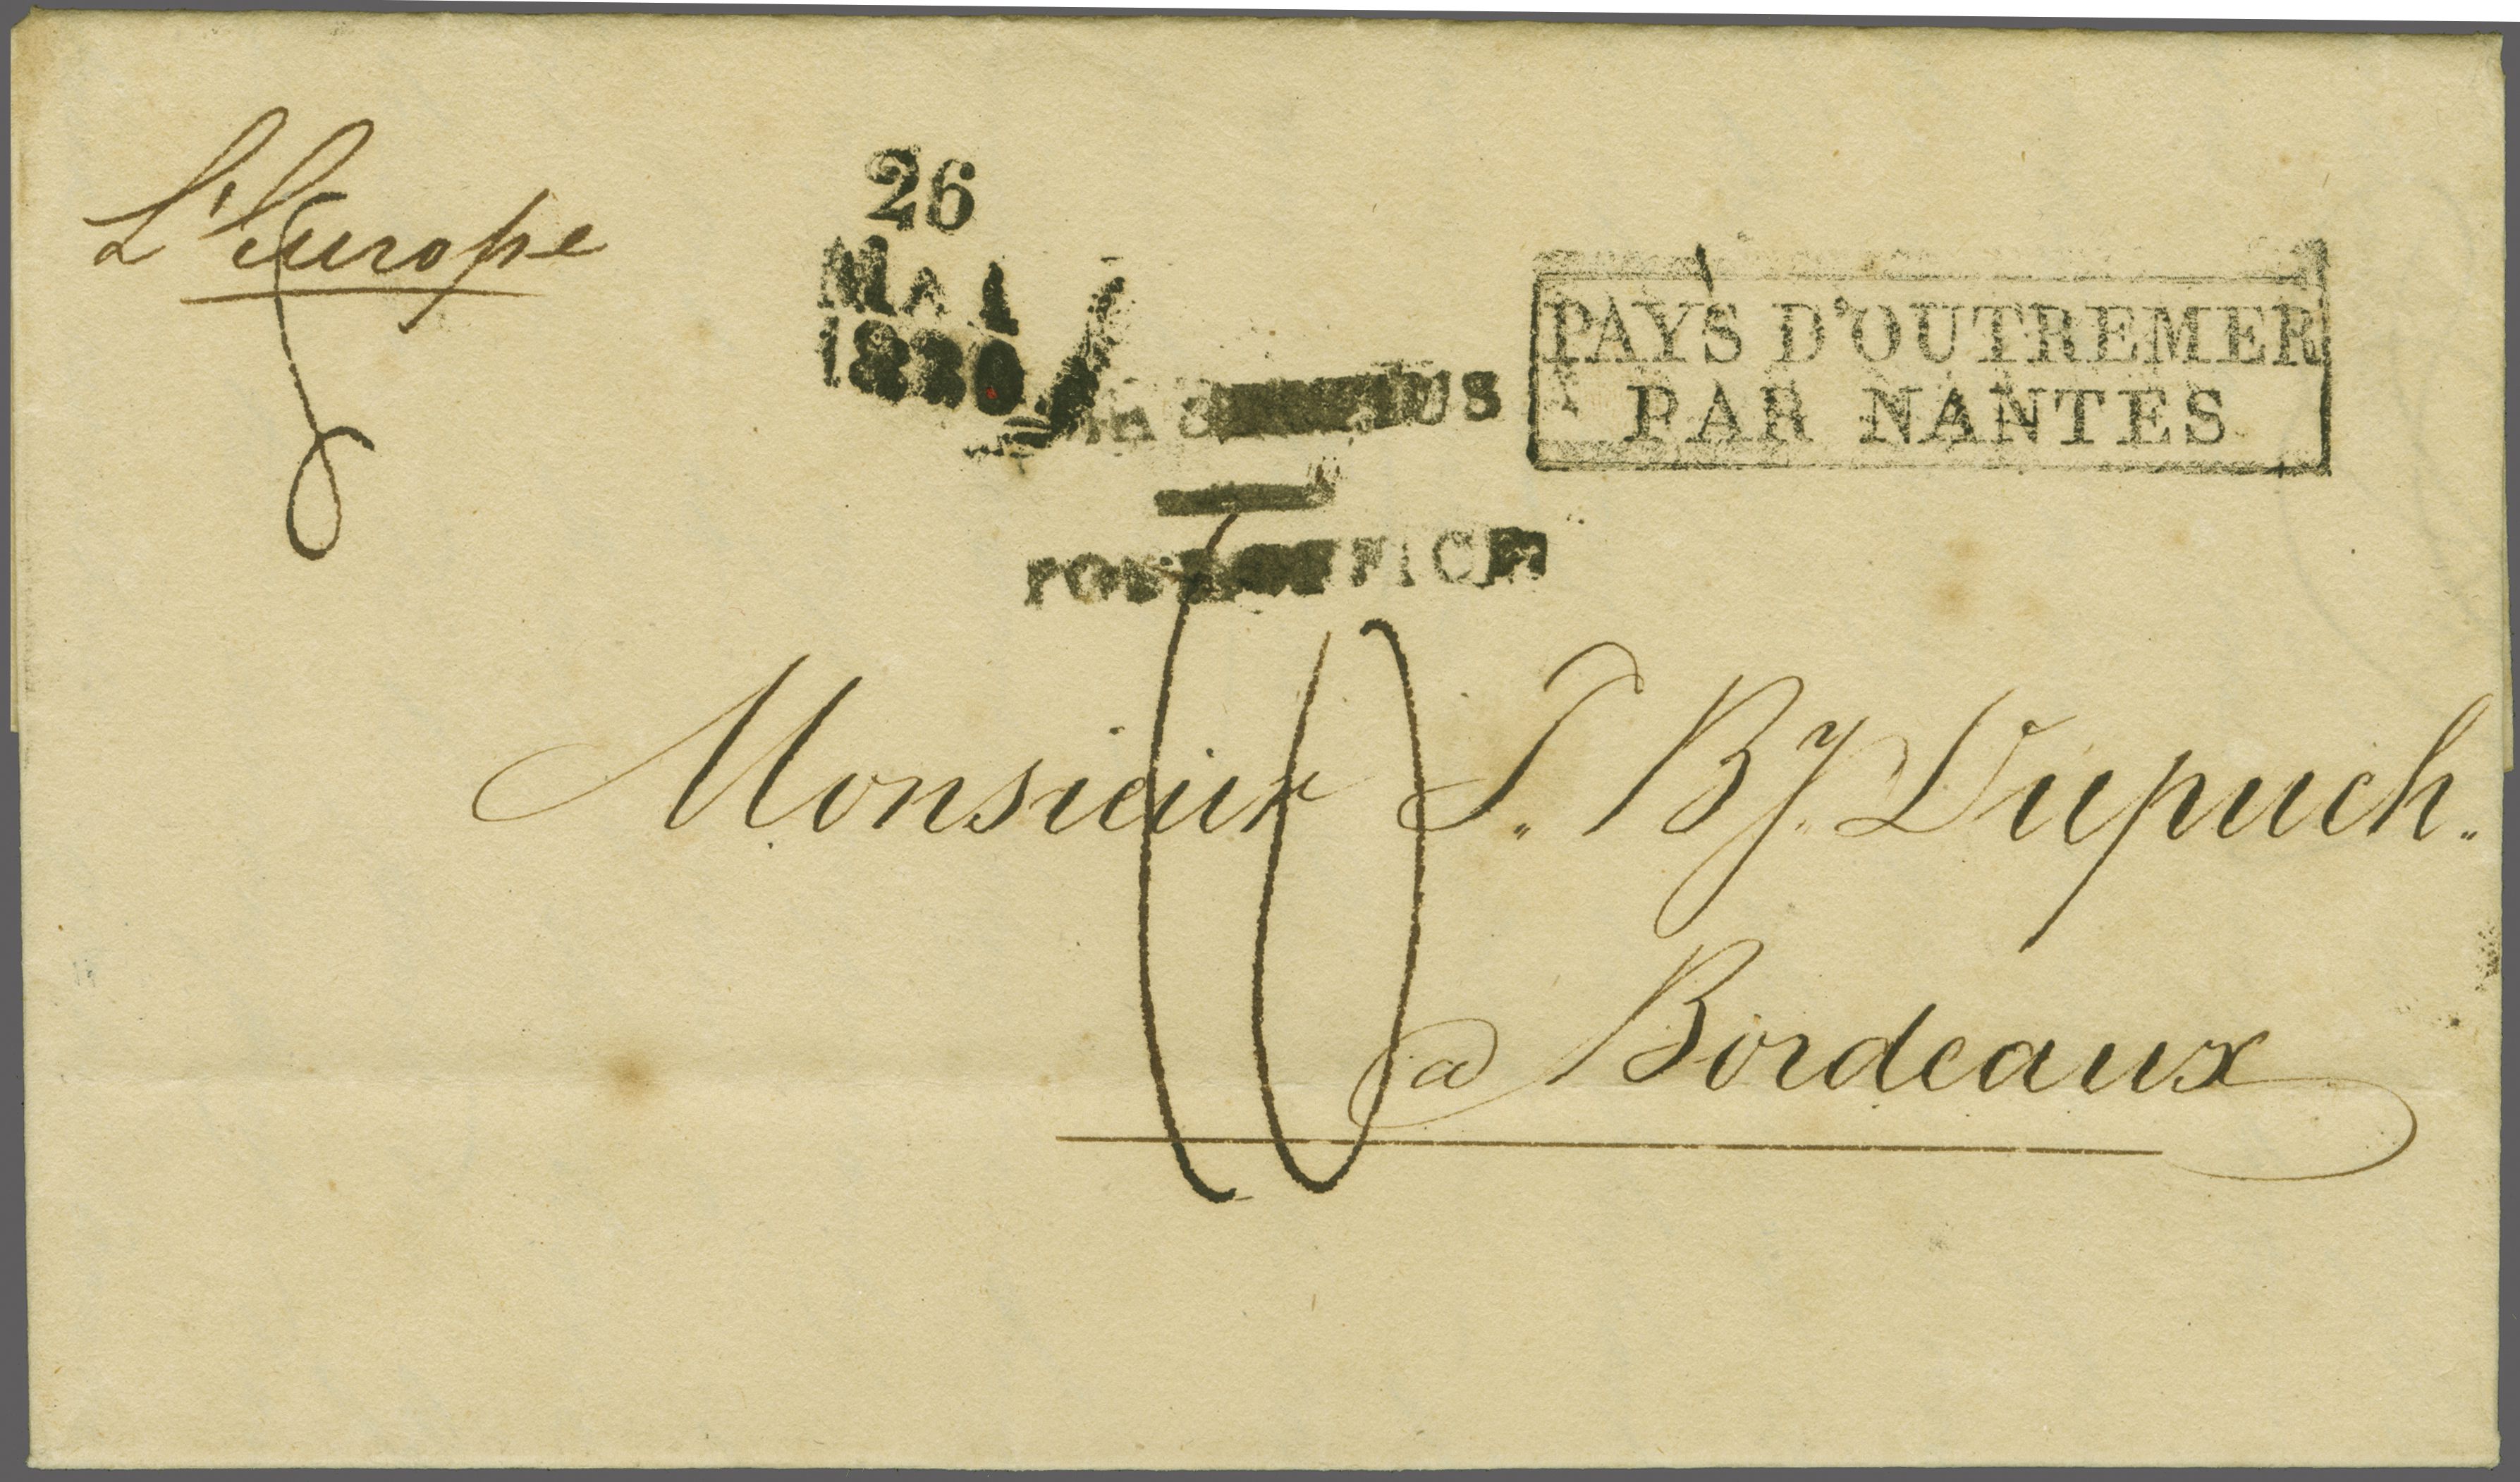 L'Europe
26
MAI
1830
PAYS D'OUTREMER
PAR NANTES
POST OFFICE
10
Monsieur J. By. Dupuch.
a Bordeaux